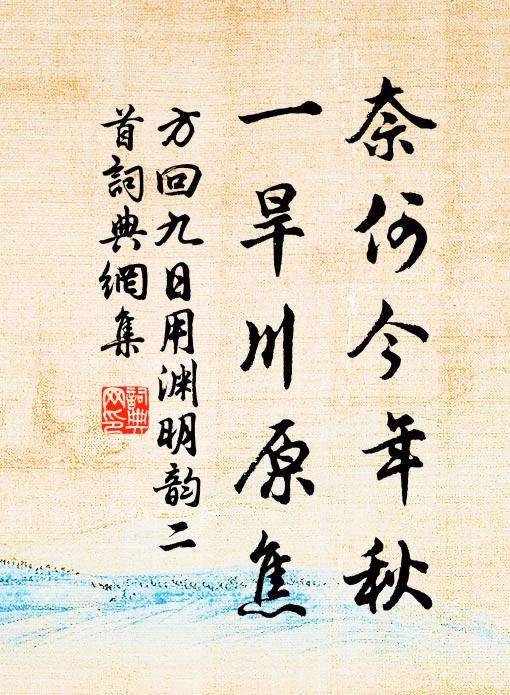 奈何今年秋
一旱川原焦
方回九日用渊明韵二
首詞典網集
詞典
网印